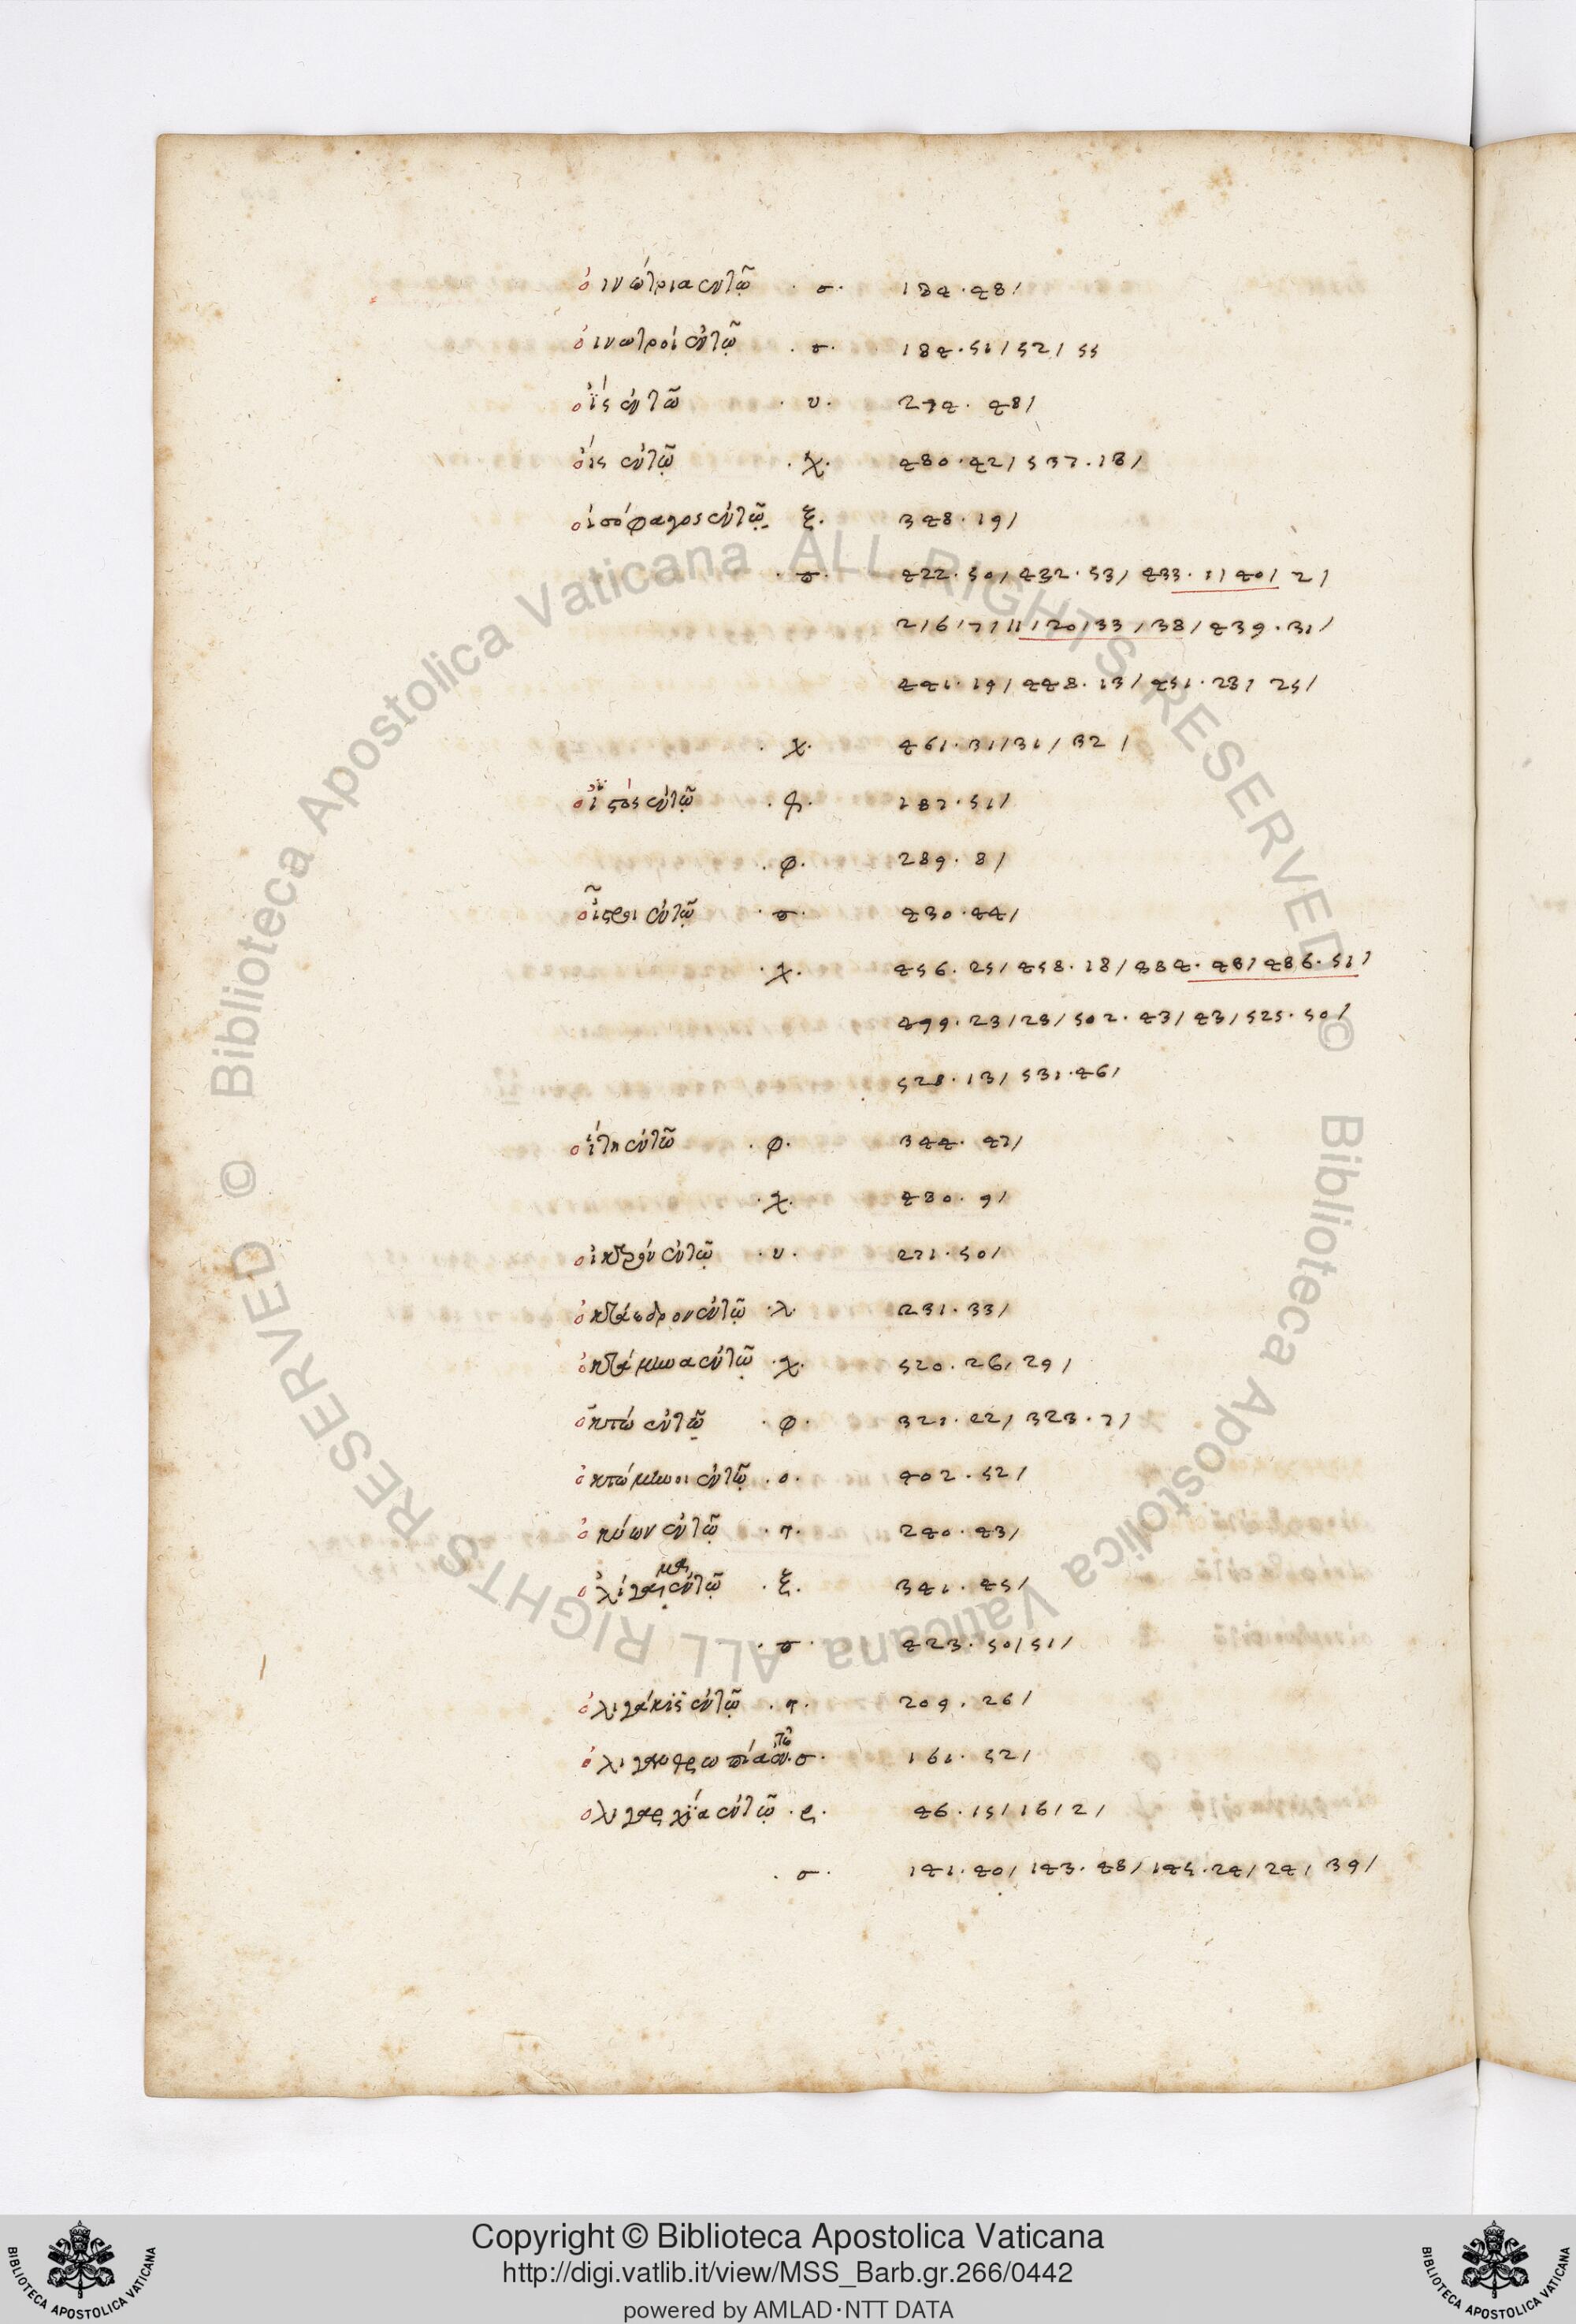 οἰνώτρια ἐν τῷ · σ · 184 · 48/
οἰνωτροί ἐν τῷ · σ · 184 · 51/52/55
οἴς ἐν τῷ · υ · 274 · 48/
οἴς ἐν τῷ · χ · 480 · 42/537 · 18/
οἰσόφαγος ἐν τῷ ξ · 348 · 19/
· σ · 422 · 50/432 · 53/433 · 1/40/2/
2/6/7/11/20/33/38/439 · 31/
441 · 19/448 · 13/451 · 23/25/
· χ · 461 · 31/31/32/
187 · 51/
· φ · 289 · 8/
οἶστροι ἐν τῷ · σ · 430 · 44/
· χ · 456 · 25/458 · 18/484 · 48/486 · 51/
499 · 23/23/502 · 43/43/525 · 50/
528 · 13/531 · 46/
ἐν τῷ · φ · 344 · 47/
· χ · 480 · 9/
ἐν τῷ · υ · 271 · 50/
ὀκτάεδρον ἐν τῷ · λ · 231 · 33/
ὀκτάμηνα ἐν τῷ · χ · 520 · 26/29/
ὀκτώ ἐν τῷ · φ · 321 · 22/323 · 7/
ὀκτώμηνοι ἐν τῷ · ο · 402 · 52/
ὀκύων ἐν τῷ · τ · 240 · 43/
ἐν τῷ · ξ · 341 · 45/
· σ · 423 · 50/51/
ὀλιγάκις ἐν τῷ · τ · 209 · 26/
ὀλιγανθρωπία ἐν τῷ · σ · 161 · 52/
ὀλιγαρχία ἐν τῷ · ρ · 46 · 15/16/2/
· σ · 141 · 40/143 · 48/145 · 24/24/39/
© Biblioteca Apostolica Vaticana ALL RIGHTS RESERVED
© Biblioteca Apostolica Vaticana ALL RIGHTS RESERVED
Copyright © Biblioteca Apostolica Vaticana
http://digi.vatlib.it/view/MSS_Barb.gr.266/0442
powered by AMLAD·NTT DATA
BIBLIOTECA APOSTOLICA VATICANA
BIBLIOTECA APOSTOLICA VATICANA